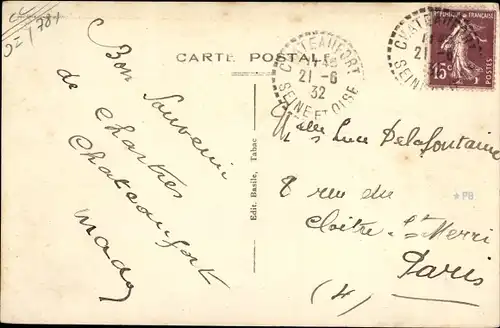 02/781
CARTE POSTALE
CHATEAUFORT
21-6
32
SEINE ET OISE
CHATEAUFORT
21-6
SEINE
REPUBLIQUE FRANÇAISE
15c
POSTES
Bon
Souvenir
de Chartres
Chateaufort
Mady
Edit. Basile, Tabac
Melle Luce Delafontaine
8 rue du
Cloître St Merri
Paris
(4)
PB